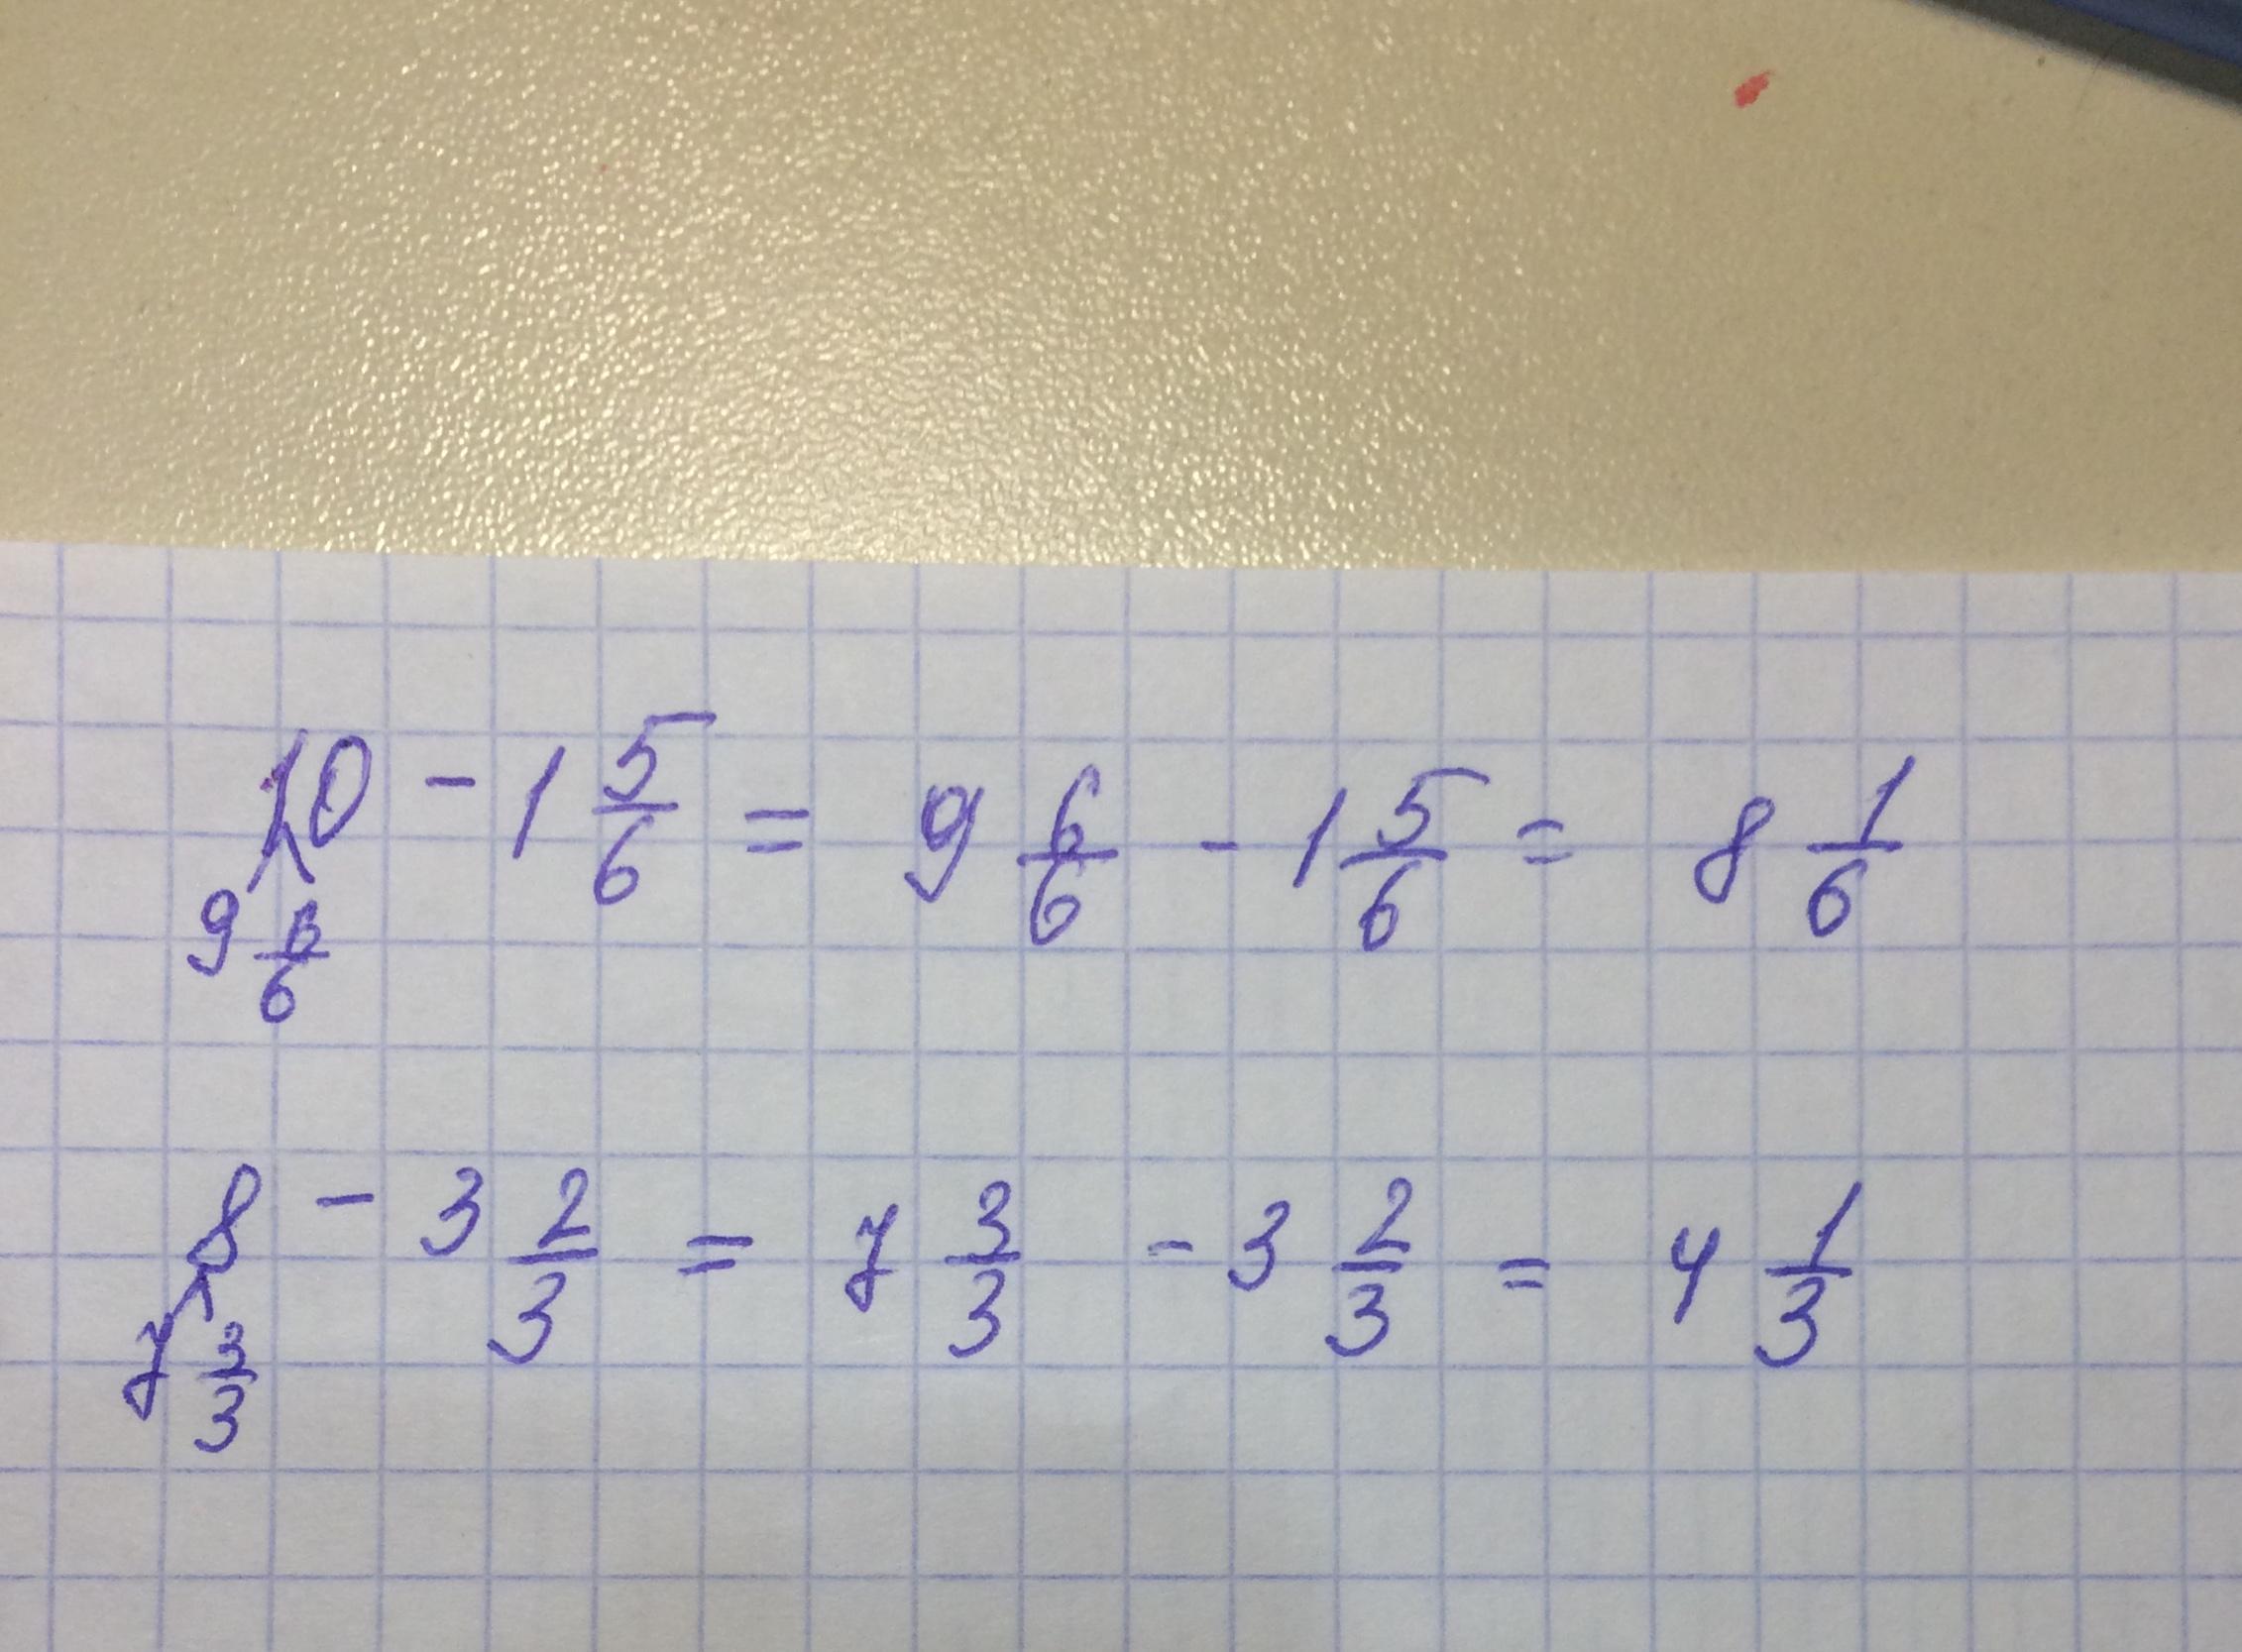 10 - 1 5/6 = 9 6/6 - 1 5/6 = 8 1/6
9 6/6
8 - 3 2/3 = 7 3/3 - 3 2/3 = 4 1/3
7 3/3